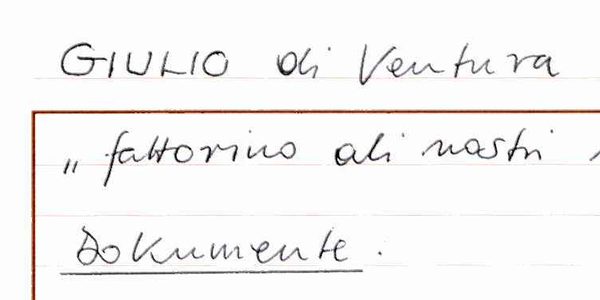 GIULIO di Ventura
„ fattorino di nostri
Dokumente.